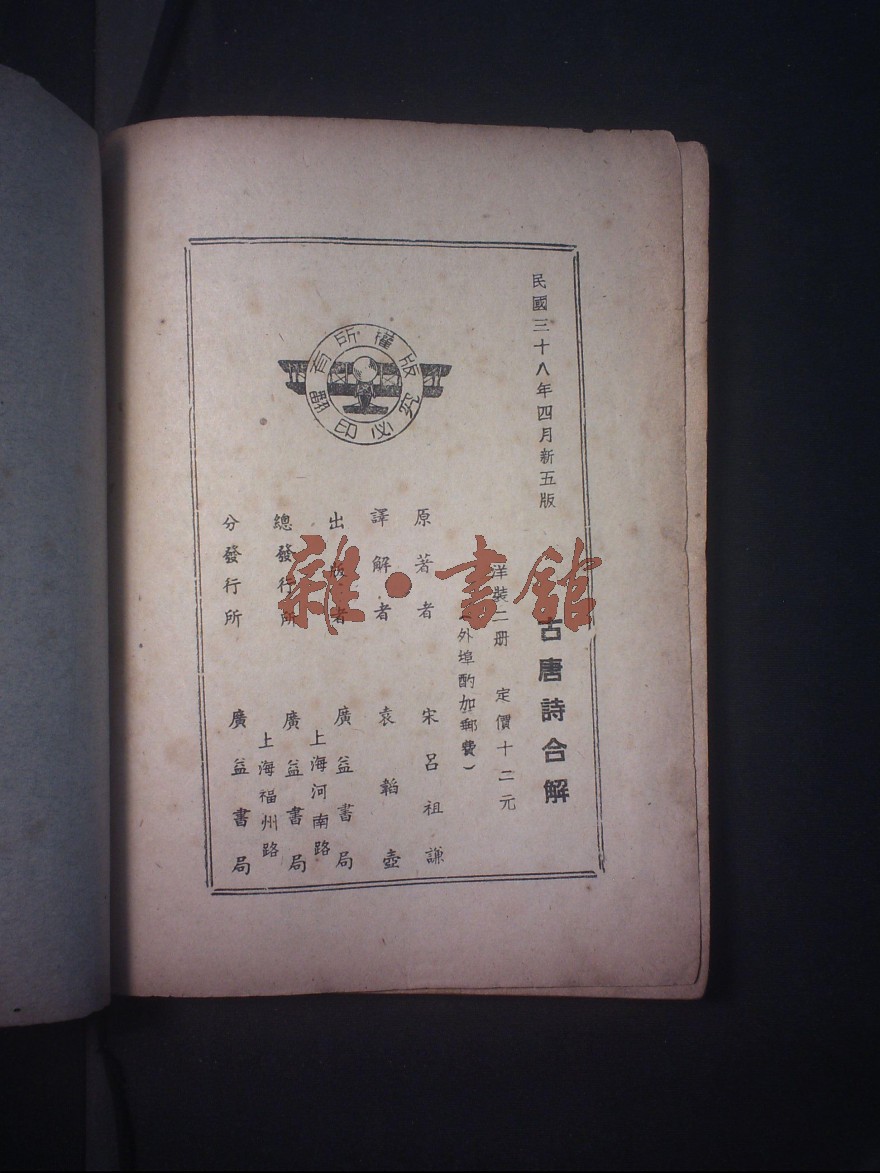 民國三十八年四月新五版
古唐詩合解
洋裝二册 定價十二元
（外埠酌加郵費）
原著者 宋呂祖謙
譯解者 袁韜壺
出版者 廣益書局
上海河南路
總發行所 廣益書局
上海福州路
分發行所 廣益書局
版權所有
翻印必究
雜·書館